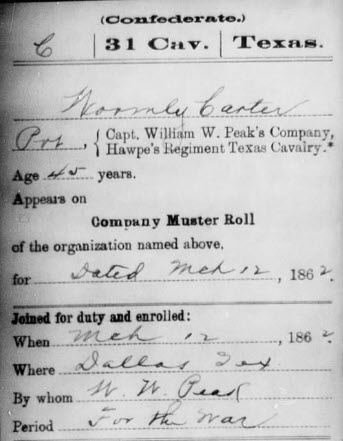 (Confederate.)
C | 31 Cav. | Texas.
Wormly Carter
Pvt, { Capt. William W. Peak's Company, Hawpe's Regiment Texas Cavalry.*
Age 45 years.
Appears on
Company Muster Roll
of the organization named above,
for Dated Mch 12, 1862.
Joined for duty and enrolled:
When Mch 12, 1862.
Where Dallas Tex
By whom W. W. Peak
Period For the War